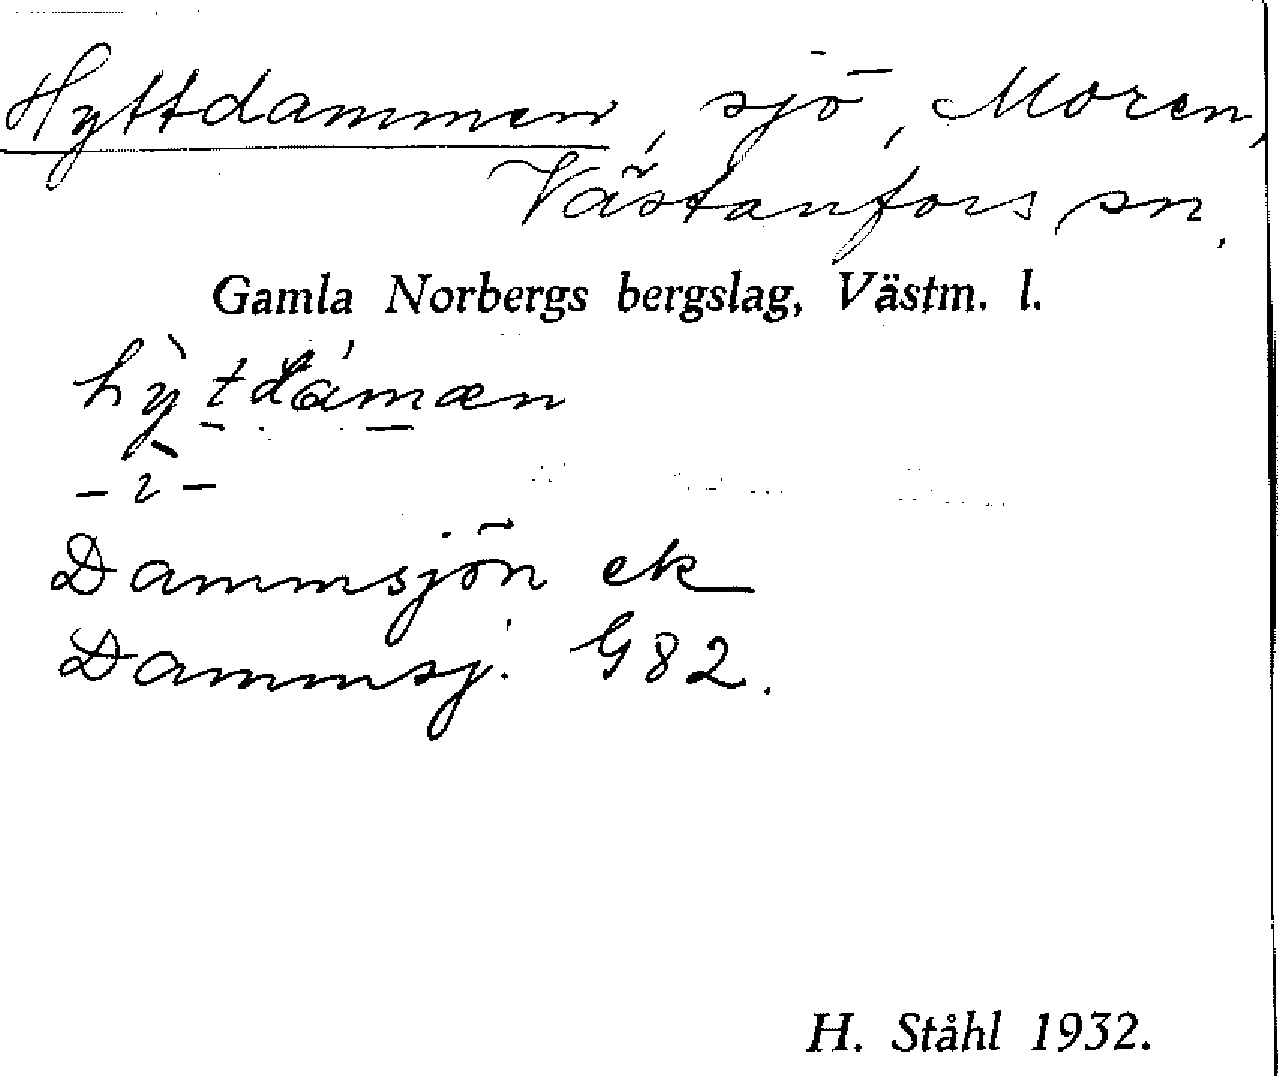 Hyttdammen, sjö, Moren,
Västanfors sn.
Gamla Norbergs bergslag, Västm. l.
hỳtdámæn
– ı –
Dammsjön ek
Dammsj. G82.
H. Ståhl 1932.